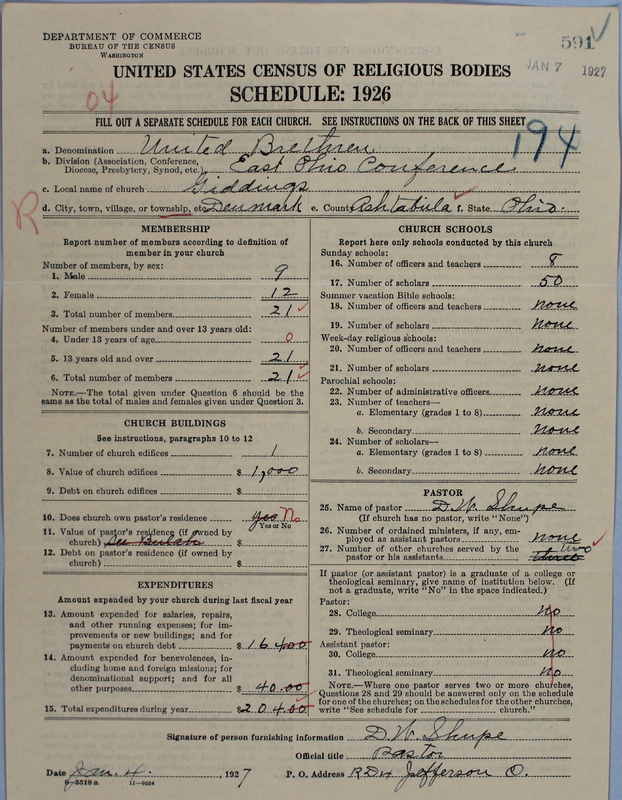 DEPARTMENT OF COMMERCE
BUREAU OF THE CENSUS
WASHINGTON
591
JAN 7 1927
UNITED STATES CENSUS OF RELIGIOUS BODIES
SCHEDULE: 1926
04
FILL OUT A SEPARATE SCHEDULE FOR EACH CHURCH. SEE INSTRUCTIONS ON THE BACK OF THIS SHEET
194
a. Denomination United Brethren
b. Division (Association, Conference, Diocese, Presbytery, Synod, etc.) East Ohio Conference
c. Local name of church Giddings
R
d. City, town, village, or township, etc. Denmark e. County Ashtabula f. State Ohio.
MEMBERSHIP
Report number of members according to definition of
member in your church
Number of members, by sex:
1. Male 9
2. Female 12
3. Total number of members 21
Number of members under and over 13 years old:
4. Under 13 years of age 0
5. 13 years old and over 21
6. Total number of members 21
NOTE.—The total given under Question 6 should be
same as the total of males and females given under Question 3.
CHURCH BUILDINGS
See instructions, paragraphs 10 to 12
7. Number of church edifices 1
8. Value of church edifices $ 1,000
9. Debt on church edifices $
10. Does church own pastor's residence yes No
Yes or No
11. Value of pastor's residence (if owned by
church) See $
12. Debt on pastor's residence (if owned by
church) $
EXPENDITURES
Amount expended by your church during last fiscal year
13. Amount expended for salaries, repairs,
and other running expenses; for im-
provements or new buildings; and for
payments on church debt $ 164.00
14. Amount expended for benevolences, in-
cluding home and foreign missions; for
denominational support; and for all
other purposes $ 40.00
15. Total expenditures during year $ 204.00
CHURCH SCHOOLS
Report here only schools conducted by this church
Sunday schools:
16. Number of officers and teachers 8
17. Number of scholars 50
Summer vacation Bible schools:
18. Number of officers and teachers none
19. Number of scholars none
Week-day religious schools:
20. Number of officers and teachers none
21. Number of scholars none
Parochial schools:
22. Number of administrative officers none
23. Number of teachers—
a. Elementary (grades 1 to 8) none
b. Secondary none
24. Number of scholars—
a. Elementary (grades 1 to 8) none
b. Secondary none
PASTOR
25. Name of pastor D.W. Shupe
(If church has no pastor, write "None")
26. Number of ordained ministers, if any, em-
ployed as assistant pastors none
27. Number of other churches served by the
pastor or his assistants three two
If pastor (or assistant pastor) is a graduate of a college or
theological seminary, give name of institution below. (If
not a graduate, write "No" in the space indicated.)
Pastor:
28. College no
29. Theological seminary no
Assistant pastor:
30. College no
31. Theological seminary no
NOTE.—Where one pastor serves two or more churches,
Questions 28 and 29 should be answered only on the schedule
for one of the churches; on the schedules for the other churches,
write "See schedule for church."
Signature of person furnishing information D.W. Shupe
Official title Pastor
Date Jan. 4. , 1927 P. O. Address R D 4 Jefferson O.
8—5518 a 11—9054